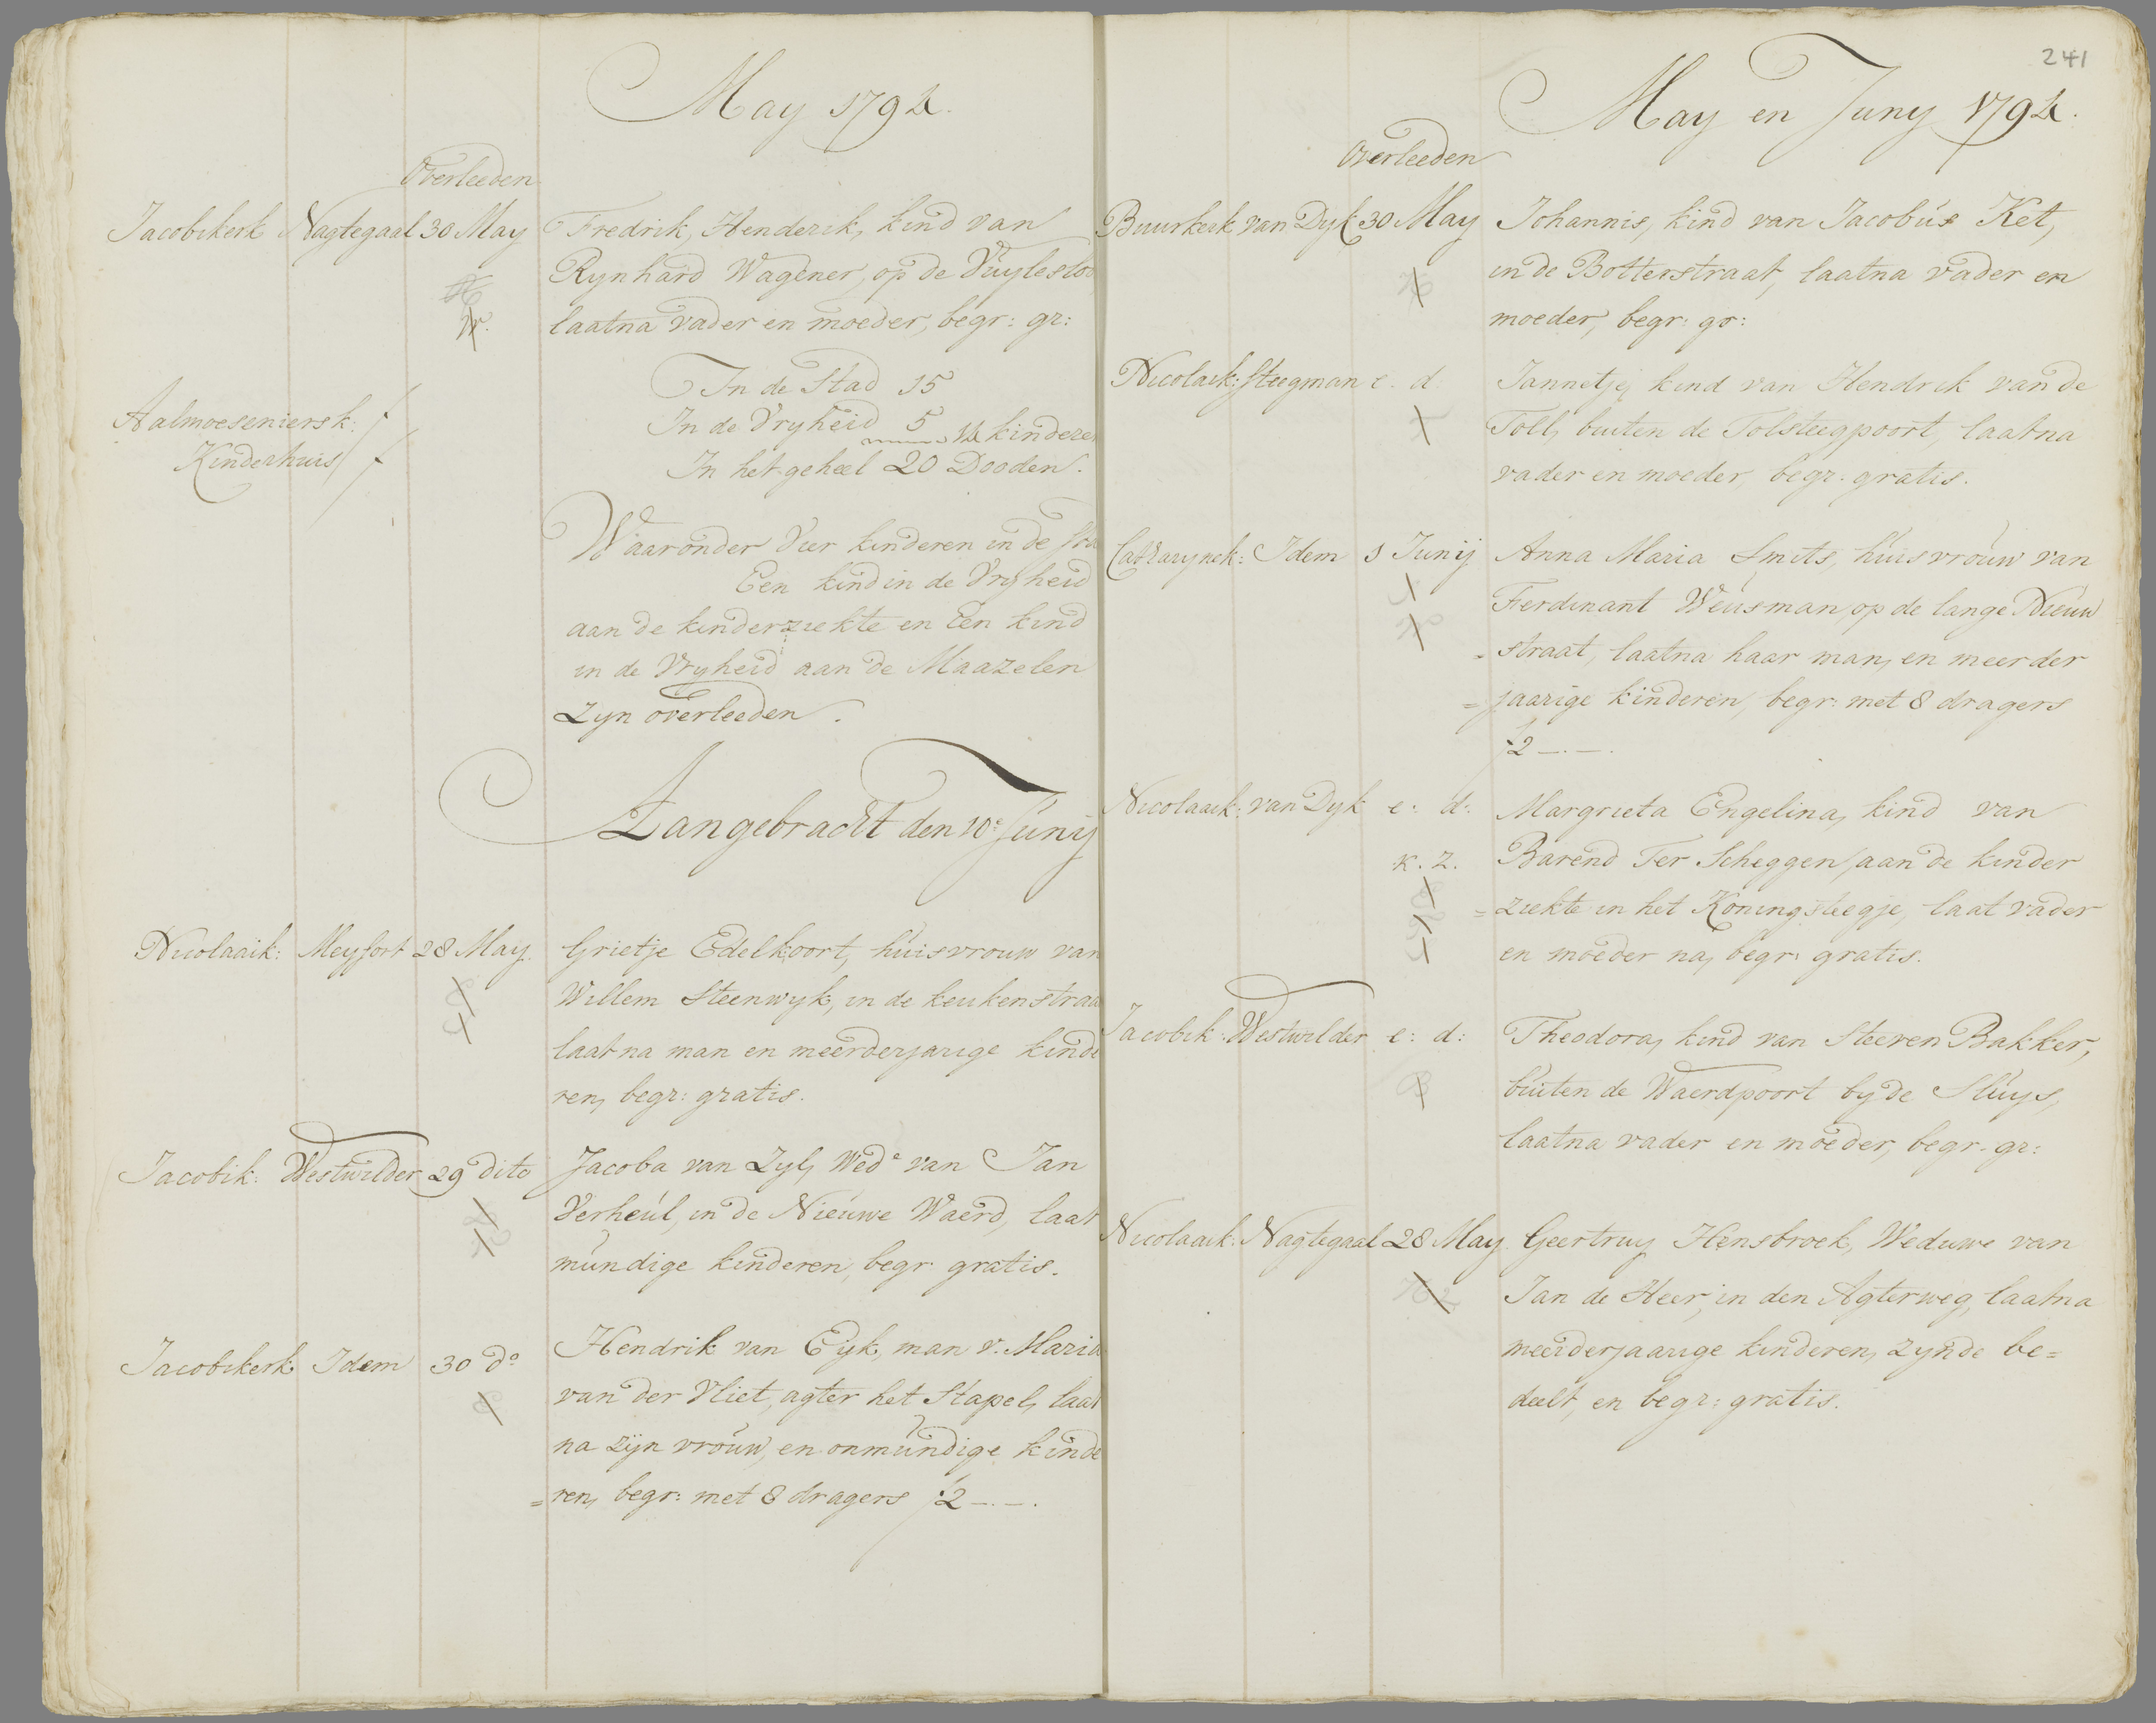 May 1792.
Overleeden
Jacobikerk Nagtegaal 30 May Fredrik, Henderik, kind van
Rynhard Wagener, op de Vuyleslo
laatna vader en moeder, begr: gr:
In de Stad 15
Aalmoeseniersk: f In de Vryheid 5 kindere
Kinderhuis f In het geheel 20 Dooden.
Waaronder Vier kinderen in de Sta
Een kind in de Vryheid
aan de kinderziekte en Een kind
in de Vryheid aan de Maazelen
zyn overleeden.
Aangebracht den 10e Juny
Nicolaaik: Meyfort 28 May. Grietje Edelkoort, huisvrouw van
Willem Steenwyk, in de keukenstraa
laat na man en meerderjarige kinde
ren, begr: gratis.
Jacobik: Westwilder 29 dito Jacoba van Zyl, Wede van Jan
Verheul, in de Nieuwe Waerd, laat
mundige kinderen, begr gratis.
Jacobikerk Idem 30 do Hendrik van Eyk, man v. Maria
van der Vliet, agter het Stapel, laat
na zijn vrouw, en onmundige kinde
=ren, begr: met 8 dragers f2 -.-.
241
May en Juny 1792.
Overleeden
Buurkerk van Dyk 30 May Johannis, kind van Jacobus Ket,
in de Botterstraat, laatna vader en
moeder, begr: gr:
Nicolaik: Steegman e. d. Jannetje, kind van Hendrik van de
Toll, buiten de Tolsteegpoort, laatna
vader en moeder, begr: gratis.
Catharynek: Idem 1 Junij Anna Maria Smits, huisvrouw van
Ferdinant Weusman, op de lange Nieuw
= straat, laatna haar man, en meerder
= jaarige kinderen, begr: met 8 dragers
f2 -.-.
Nicolaaik: van Dyk e: d: Margrieta Engelina, kind van
K. Z. Barend Ter Scheggen, aan de kinder
= ziekte in het Koningsteegje, laat vader
en moeder na, begr: gratis.
Jacobik: Westwilder e: d: Theodora, kind van Steeven Bakker,
buiten de Waerdpoort by de Sluys,
laatna vader en moeder, begr. gr:
Nicolaaik: Nagtegaal 28 May Geertruy Hensbroek, Weduwe van
Jan de Heer, in den Agterweg, laatna
meerderjaarige kinderen, zynde be=
deelt, en begr: gratis.